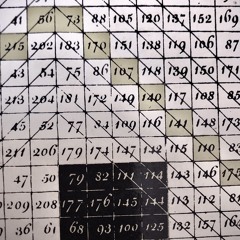 41 56 73 88 105 120 137 152 169
215 202 183 170 151 138 119 106 87
43 54 75 86 107 118 139 150 171
213 204 181 172 149 140 117 108 85
45 52 77 84 109 116 141 148
211 206 179 174 147 142 115 110
47 50 79 82 111 114 143 146 175
209 208 177 176 145 144 113 112
36 61 68 93 100 125 132 157